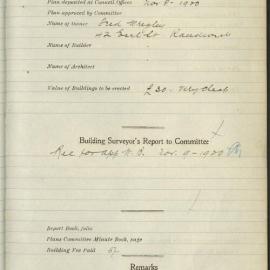 Plan deposited at Council Offices Nov 8 - 1900
Plan approved by Committee
Name of Owner Fred
42 Earl St Randwick
Name of Builder
Name of Architect
Value of Buildings to be erected £30 - Very Cheap
Building Surveyor's Report to Committee
Rec for app Nov. 9 - 1900
Report Book, folio
Plans Committee Minute Book, page
Building Fee Paid 5/-
Remarks